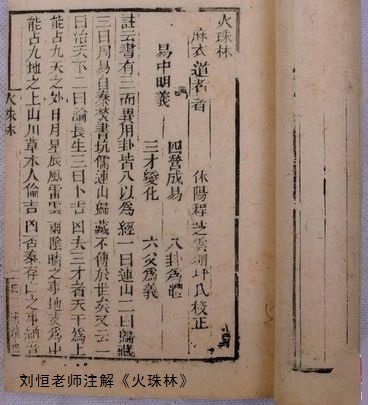 火珠林
麻衣道者著 休陽程芝雲 坪氏校正
易中明義 四營成易 八卦為體
三才變化 六爻為義
註云書有三而異用卦皆八以為經一曰連山二曰歸藏
三曰周易自秦焚書坑儒連山歸藏不傳於世矣又云一
曰治天下二曰論長生三曰卜吉凶夫三才者天為上
能占九天之外日月星辰風雷雲雨陰晴之事地支為中
能占九地之上山川草木人倫吉凶否泰存亡之事納音
火珠林
刘恒老师注解《火珠林》